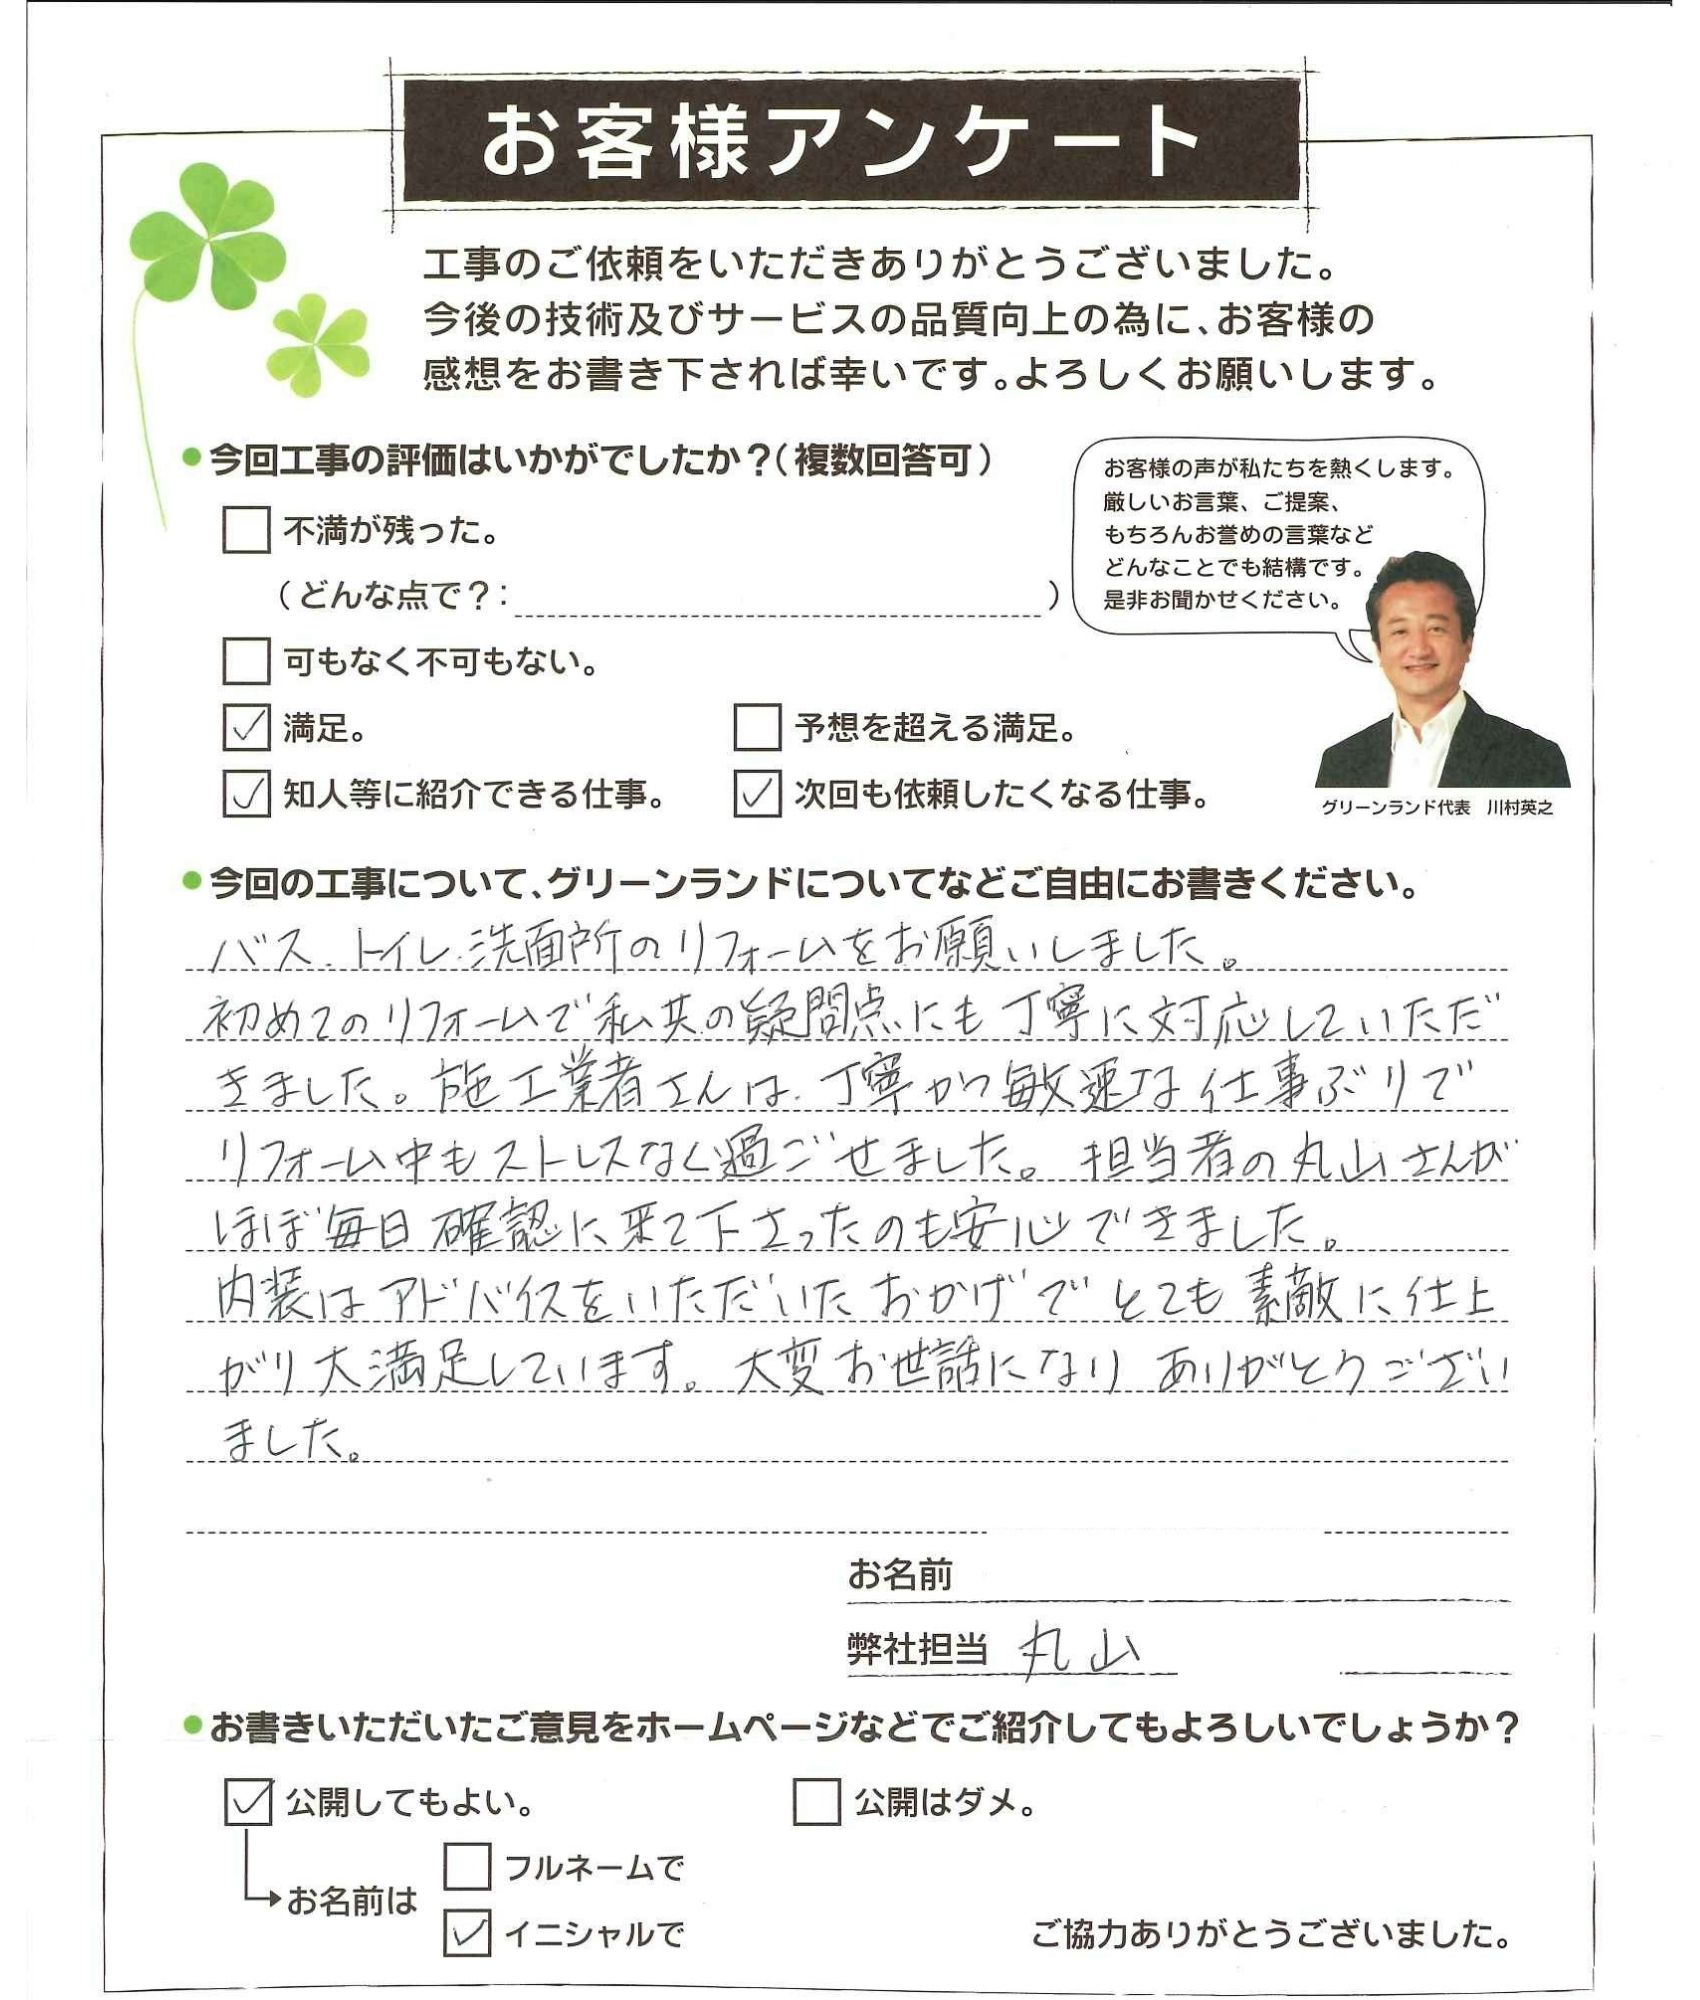 お客様アンケート
工事のご依頼をいただきありがとうございました。
今後の技術及びサービスの品質向上の為に、お客様の
感想をお書き下されば幸いです。よろしくお願いします。
●今回工事の評価はいかがでしたか？（複数回答可）
お客様の声が私たちを熱くします。
厳しいお言葉、ご提案、
もちろんお誉めの言葉など
どんなことでも結構です。
是非お聞かせください。
□ 不満が残った。
（どんな点で？： ）
□ 可もなく不可もない。
☑ 満足。 □ 予想を超える満足。
☑ 知人等に紹介できる仕事。 ☑ 次回も依頼したくなる仕事。
グリーンランド代表　川村英之
●今回の工事について、グリーンランドについてなどご自由にお書きください。
バス、トイレ、洗面所のリフォームをお願いしました。
初めてのリフォームで私共の疑問点にも丁寧に対応していただ
きました。施工業者さんは、丁寧かつ敏速な仕事ぶりで
リフォーム中もストレスなく過ごせました。担当者の丸山さんが
ほぼ毎日確認に来て下さったのも安心できました。
内装はアドバイスをいただいたおかげでとても素敵に仕上
がり大満足しています。大変お世話になりありがとうござい
ました。
お名前
弊社担当 丸山
●お書きいただいたご意見をホームページなどでご紹介してもよろしいでしょうか？
☑ 公開してもよい。 □ 公開はダメ。
□ フルネームで
お名前は
☑ イニシャルで
ご協力ありがとうございました。